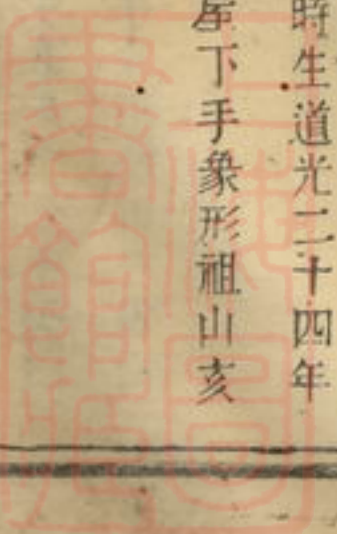 時生道光二十四年
下手象形祖山亥